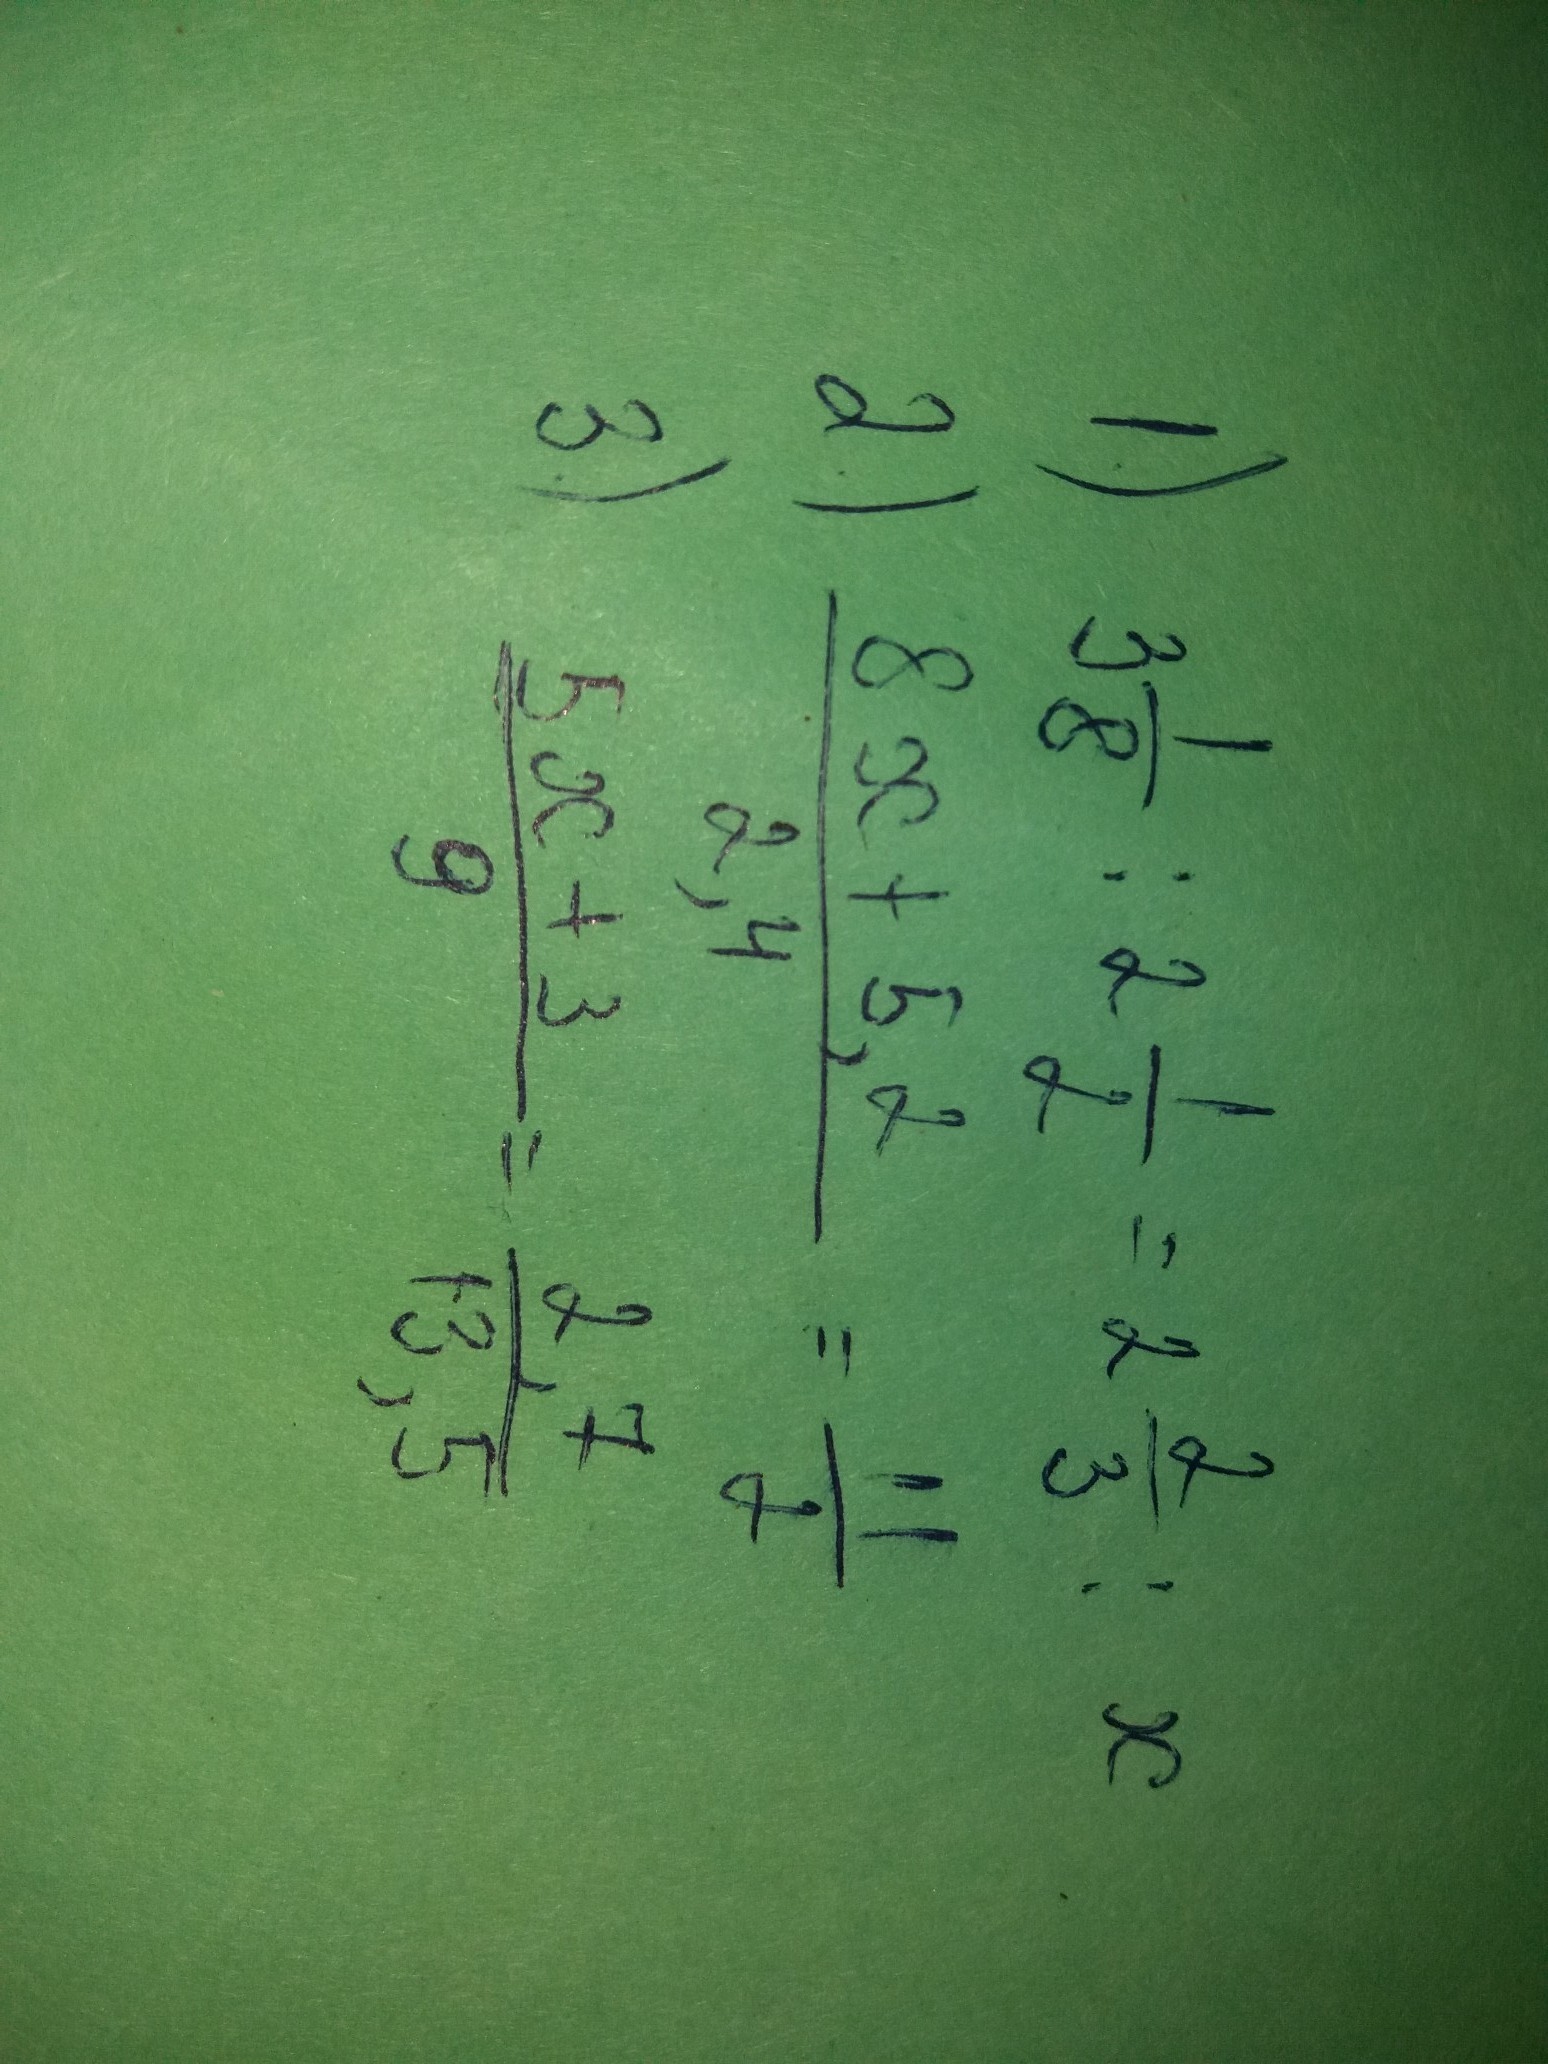 1) 3 1/8 : 2 1/2 = 2 2/3 : x
2) (8x + 5,2)/2,4 = 11/2
3) (5x + 3)/9 = 2,7/13,5